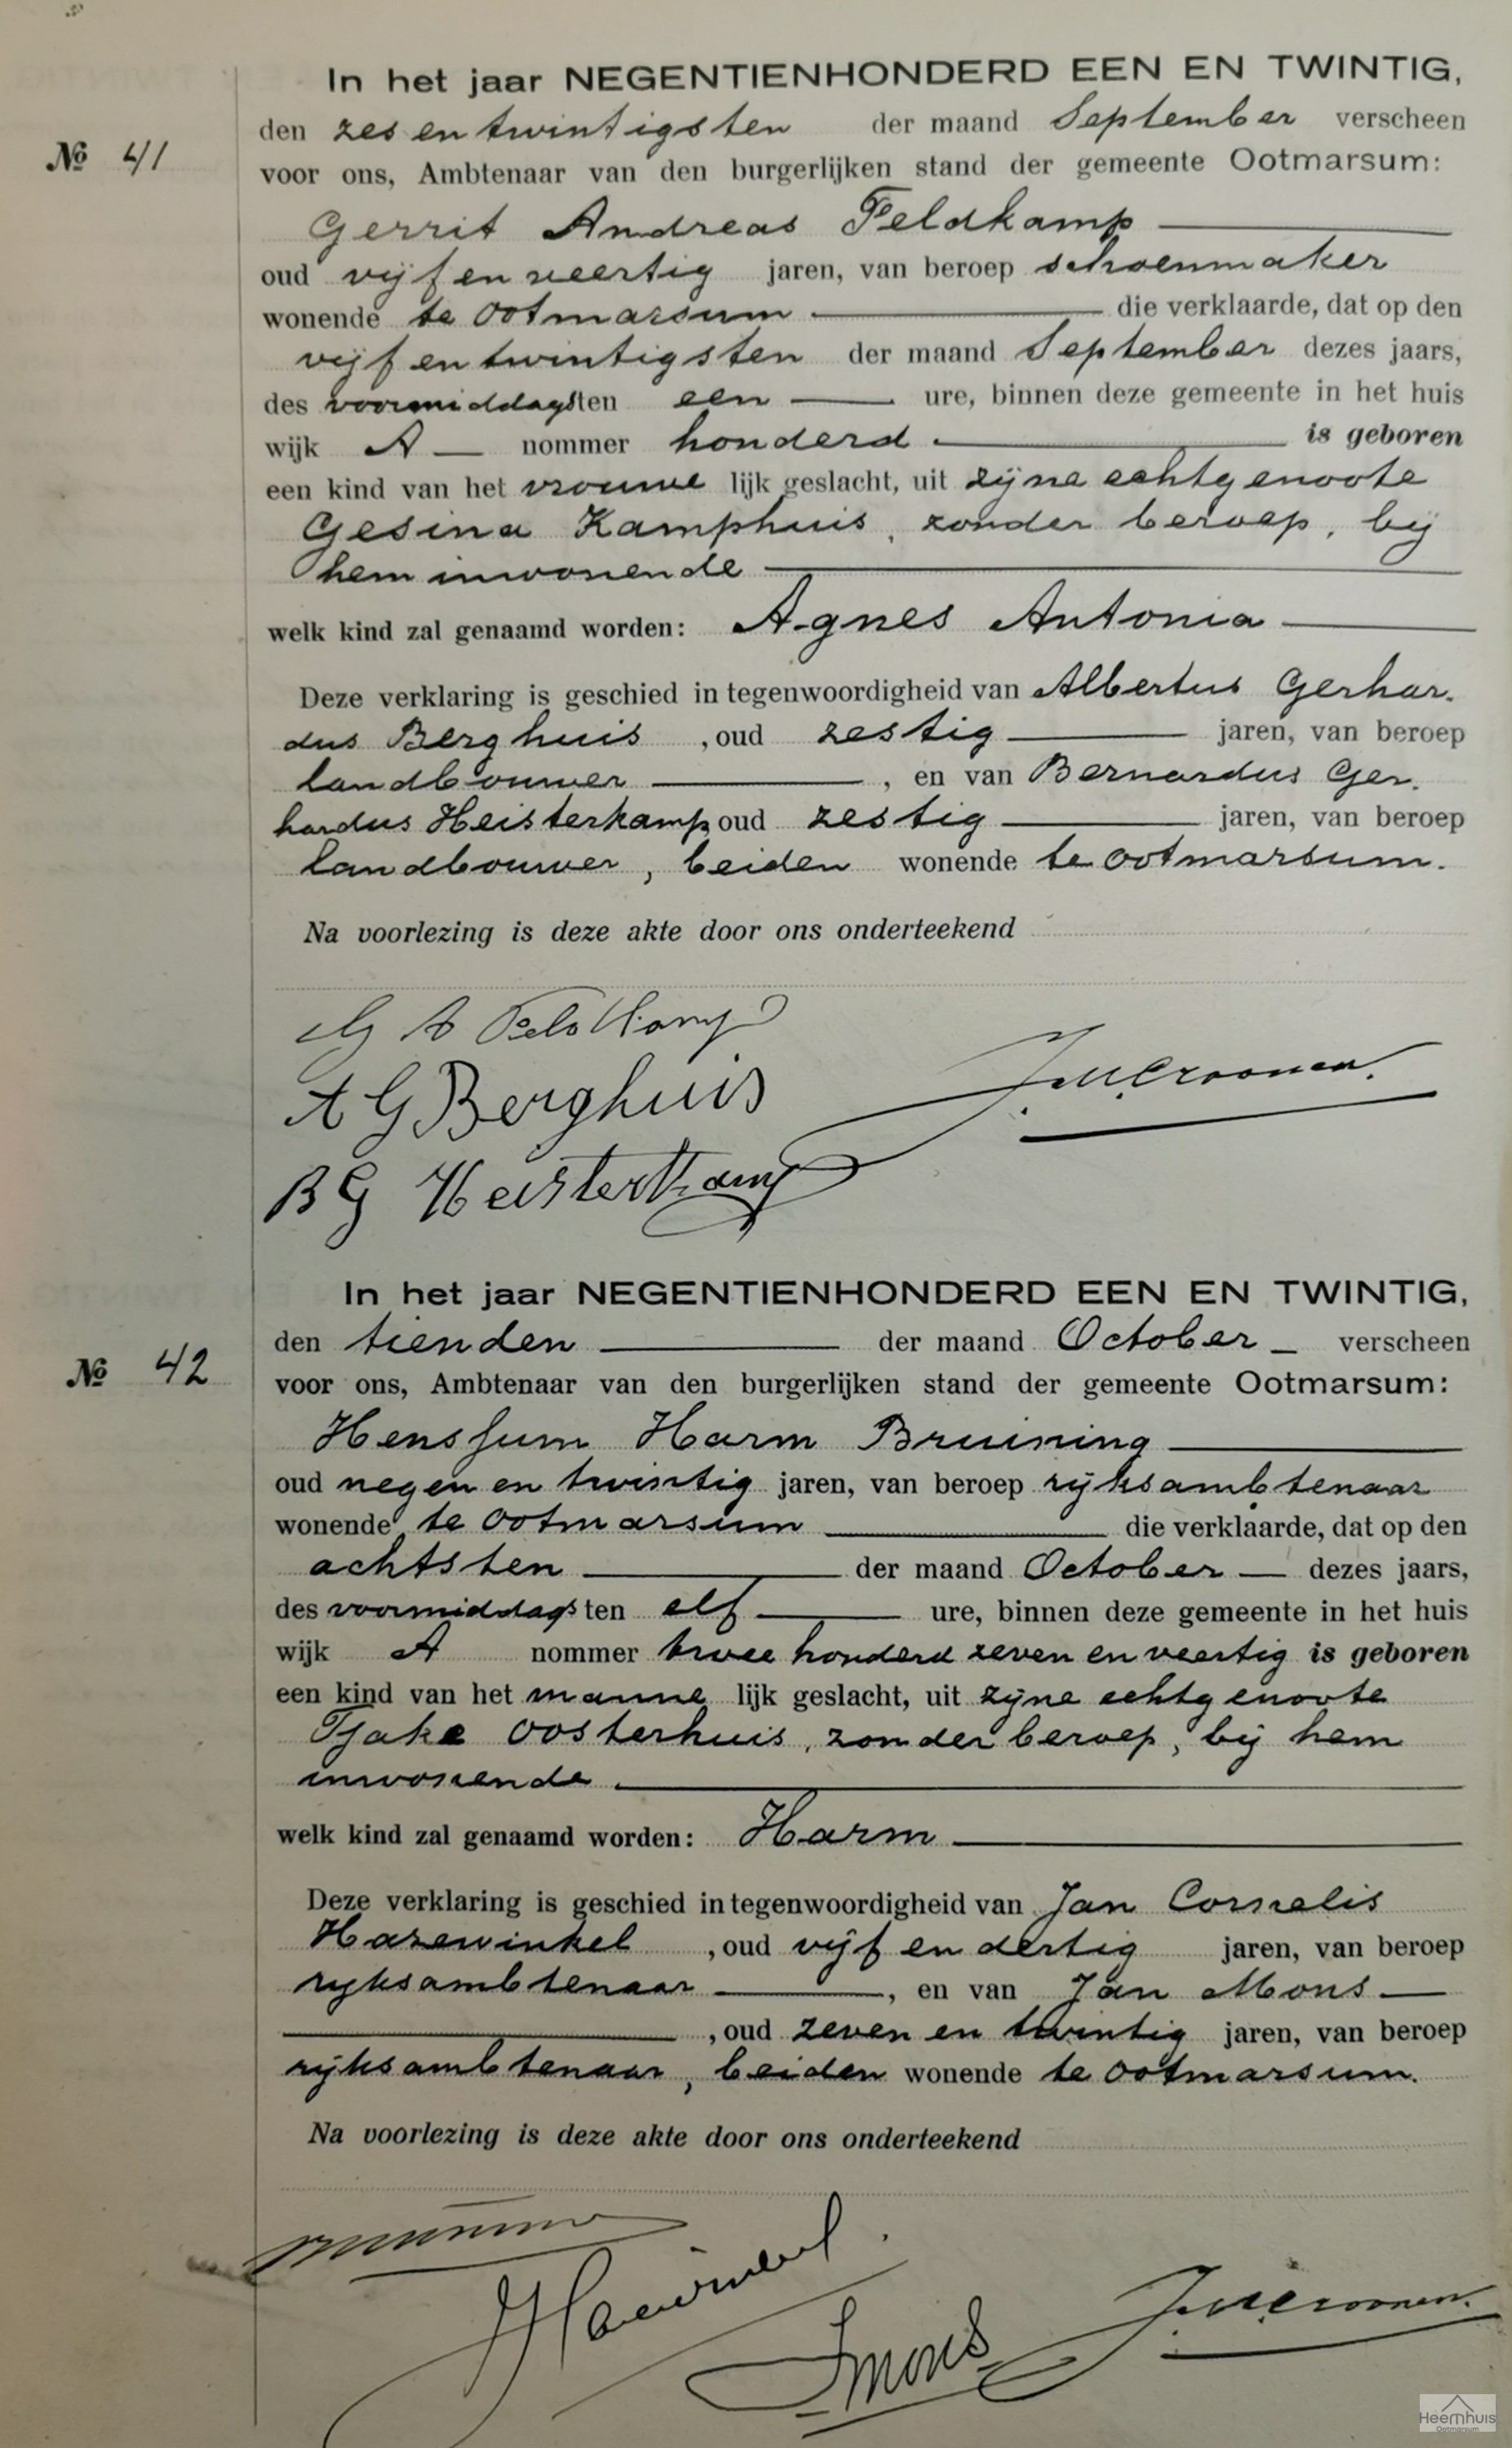 In het jaar NEGENTIENHONDERD EEN EN TWINTIG,
den zes en twintigsten der maand September verscheen
№ 41
voor ons, Ambtenaar van den burgerlijken stand der gemeente Ootmarsum:
Gerrit Andreas Feldkamp
oud vijf en veertig jaren, van beroep schoenmaker
wonende te Ootmarsum die verklaarde, dat op den
vijf en twintigsten der maand September dezes jaars,
des voormiddags ten een ure, binnen deze gemeente in het huis
wijk A nommer honderd is geboren
een kind van het vrouwe lijk geslacht, uit zijne echtgenoote
Gesina Kamphuis, zonder beroep, bij
hem inwonende
welk kind zal genaamd worden: Agnes Antonia
Deze verklaring is geschied in tegenwoordigheid van Albertus Gerhar-
dus Berghuis, oud zestig jaren, van beroep
landbouwer, en van Bernardus Ger-
hardus Heisterkamp oud zestig jaren, van beroep
landbouwer, beiden wonende te Ootmarsum.
Na voorlezing is deze akte door ons onderteekend
G A Feldkamp
J.M.Croonen.
A G Berghuis
B G Heisterkamp
In het jaar NEGENTIENHONDERD EEN EN TWINTIG,
den tienden der maand October verscheen
№ 42
voor ons, Ambtenaar van den burgerlijken stand der gemeente Ootmarsum:
Henssum Harm Bruining
oud negen en twintig jaren, van beroep rijksambtenaar
wonende te Ootmarsum die verklaarde, dat op den
achtsten der maand October dezes jaars,
des voormiddags ten elf ure, binnen deze gemeente in het huis
wijk A nommer twee honderd zeven en veertig is geboren
een kind van het manne lijk geslacht, uit zijne echtgenoote
Tjake Oosterhuis, zonder beroep, bij hem
inwonende
welk kind zal genaamd worden: Harm
Deze verklaring is geschied in tegenwoordigheid van Jan Cornelis
Hazewinkel, oud vijf en dertig jaren, van beroep
rijksambtenaar, en van Jan Mons
, oud zeven en twintig jaren, van beroep
rijksambtenaar, beiden wonende te Ootmarsum.
Na voorlezing is deze akte door ons onderteekend
J.M.Croonen.
JMons
Heemhuis
Ootmarsum